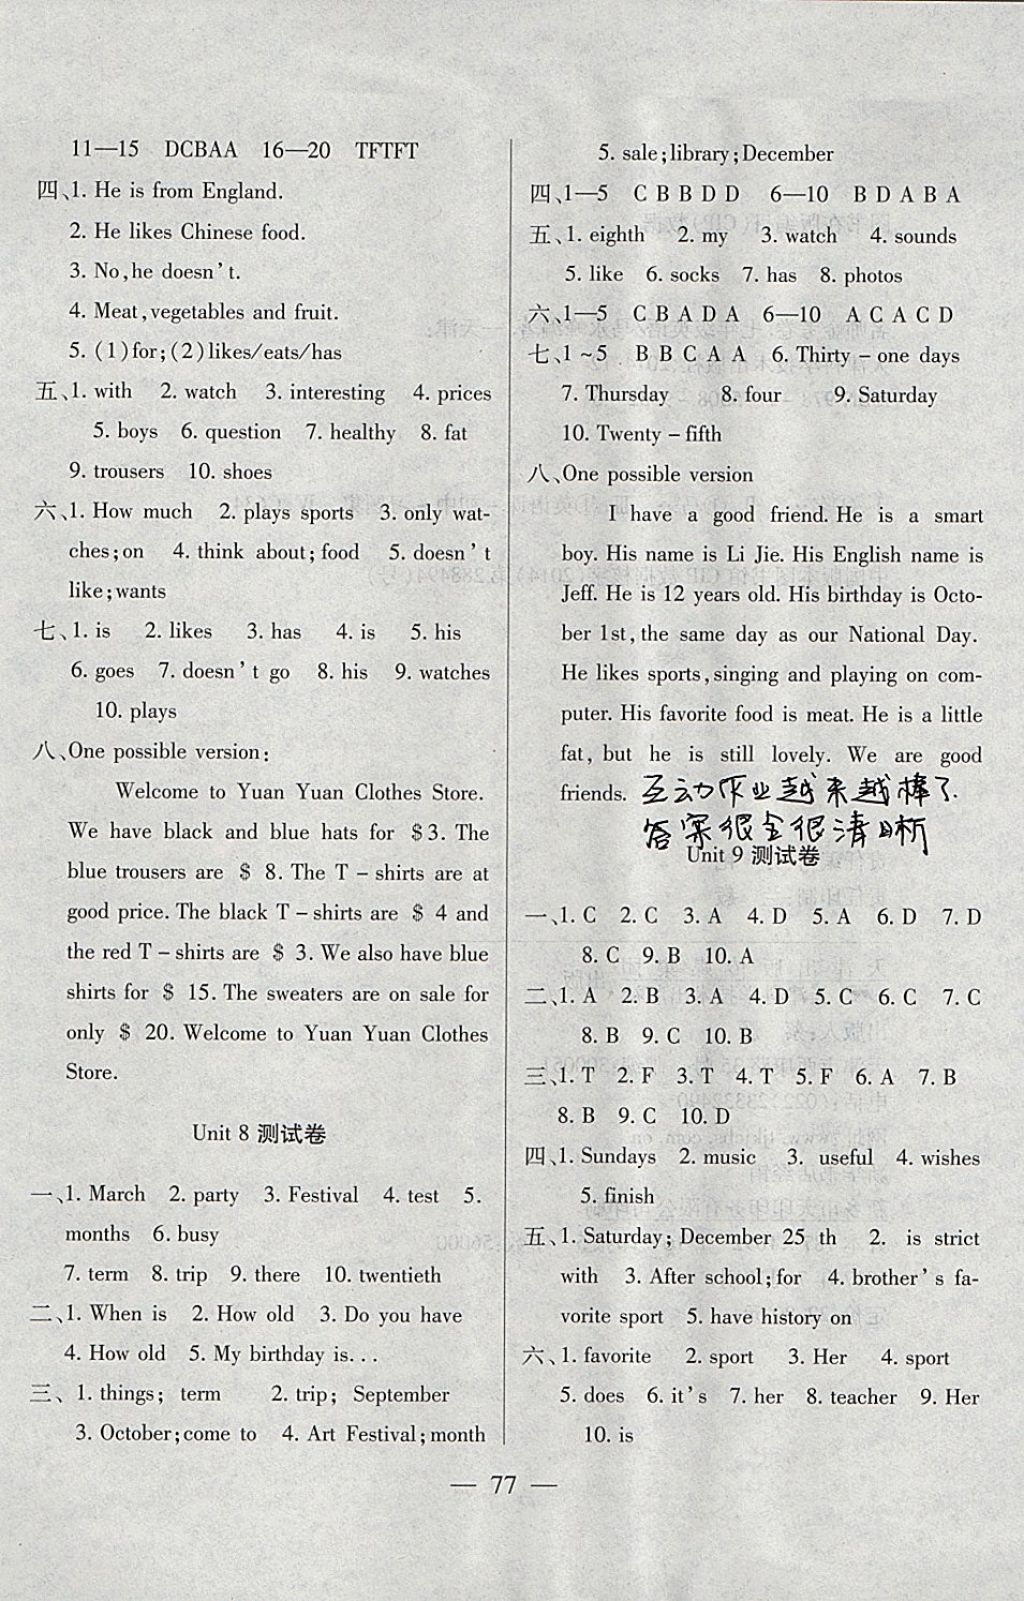 11—15 DCBAA 16—20 TFTFT
四、1. He is from England.
2. He likes Chinese food.
3. No,he doesn't.
4. Meat,vegetables and fruit.
5. (1)for;(2)likes/eats/has
五、1. with 2. watch 3. interesting 4. prices
5. boys 6. question 7. healthy 8. fat
9. trousers 10. shoes
六、1. How much 2. plays sports 3. only wat-
ches;on 4. think about;food 5. doesn't
like;wants
七、1. is 2. likes 3. has 4. is 5. his
6. goes 7. doesn't go 8. his 9. watches
10. plays
八、One possible version:
Welcome to Yuan Yuan Clothes Store.
We have black and blue hats for $3. The
blue trousers are $ 8. The T-shirts are at
good price. The black T-shirts are $ 4 and
the red T-shirts are $ 3. We also have blue
shirts for $ 15. The sweaters are on sale for
only $ 20. Welcome to Yuan Yuan Clothes
Store.
Unit 8 测试卷
一、1. March 2. party 3. Festival 4. test 5.
months 6. busy
7. term 8. trip 9. there 10. twentieth
二、1. When is 2. How old 3. Do you have
4. How old 5. My birthday is...
三、1. things; term 2. trip; September
3. October;come to 4. Art Festival;month
5. sale;library;December
四、1—5 C B B D D 6—10 B D A B A
五、1. eighth 2. my 3. watch 4. sounds
5. like 6. socks 7. has 8. photos
六、1—5 C B A D A 6—10 A C A C D
七、1~5 B B C A A 6. Thirty-one days
7. Thursday 8. four 9. Saturday
10. Twenty-fifth
八、One possible version
I have a good friend. He is a smart
boy. His name is Li Jie. His English name is
Jeff. He is 12 years old. His birthday is Octo-
ber 1st,the same day as our National Day.
He likes sports,singing and playing on com-
puter. His favorite food is meat. He is a little
fat, but he is still lovely. We are good
friends. 互动作业越来越棒了.
答案很全很清晰
Unit 9 测试卷
一、1. C 2. C 3. A 4. D 5. A 6. D 7. D
8. C 9. B 10. A
二、1. A 2. B 3. A 4. D 5. C 6. C 7. C
8. B 9. C 10. B
三、1. T 2. F 3. T 4. T 5. F 6. A 7. B
8. B 9. C 10. D
四、1. Sundays 2. music 3. useful 4. wishes
5. finish
五、1. Saturday; December 25 th 2. is strict
with 3. After school;for 4. brother's fa-
vorite sport 5. have history on
六、1. favorite 2. sport 3. Her 4. sport
5. does 6. it's 7. her 8. teacher 9. Her
10. is
— 77 —